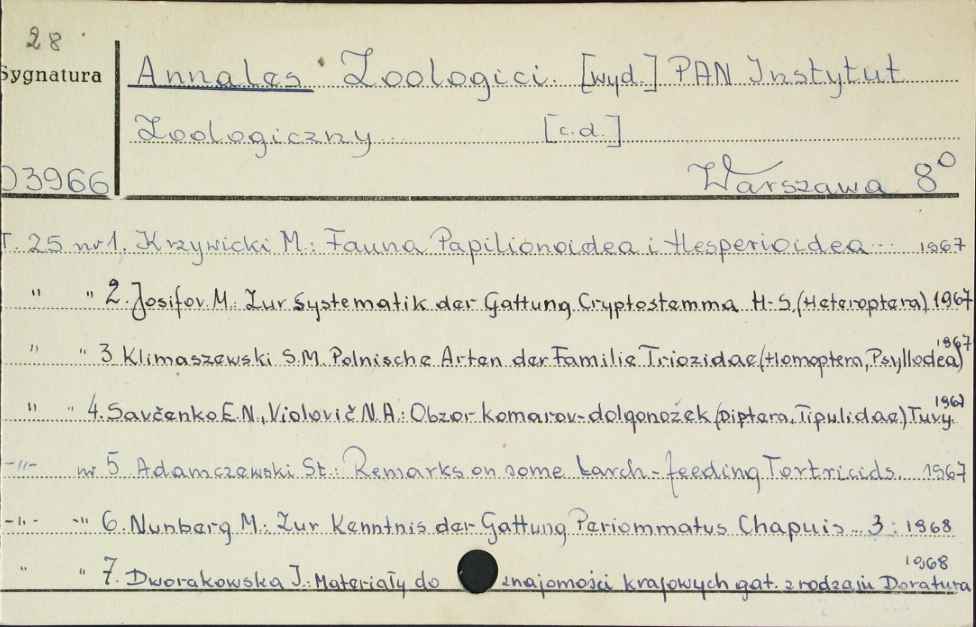 28
Sygnatura
Annales Zoologici. [wyd.] PAN Instytut
Zoologiczny [c.d.]
03966
Warszawa 8°
T. 25 nr 1. Krzywicki M.: Fauna Papilionoidea i Hesperioidea... 1967
" " 2. Josifov M.: Zur Systematik der Gattung Cryptostemma H-S.(Heteroptera) 1967
" " 3 Klimaszewski S.M. Polnische Arten der Familie Triozidae (Homoptera, Psyllodea) 1967
" " 4. Savčenko E.N., Violovič N.A.: Obzor komarov-dolgonožek (Diptera, Tipulidae) Tuvy. 1967
-"- nr 5 Adamczewski St.: Remarks on some larch-feeding Tortricids.. 1967
-"- -" 6. Nunberg M.: Zur Kenntnis der Gattung Periommatus Chapuis... 3: 1968
" " 7. Dworakowska J.: Materiały do znajomości krajowych gat. z rodzaju Doratura 1968